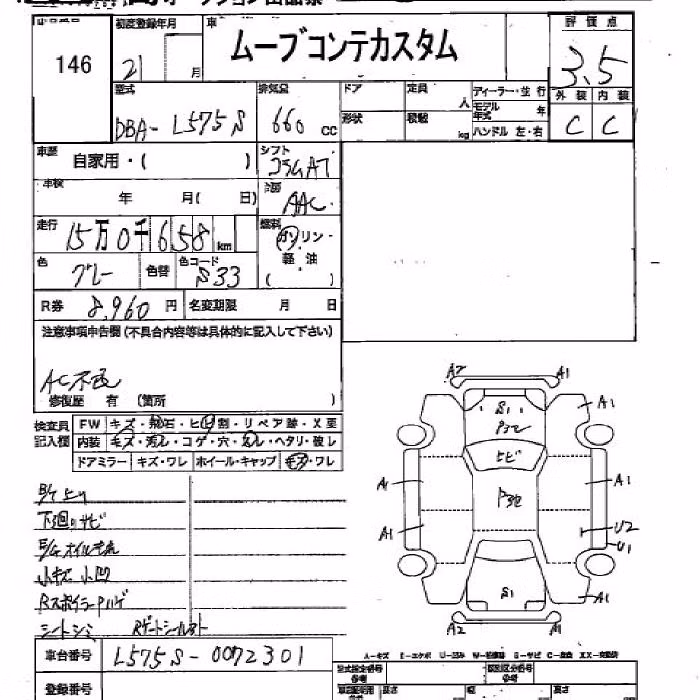 146
初度登録年月
21 月
車
ムーブコンテカスタム
評価点
3.5
外装 内装
C C
型式
DBA- L575S
排気量
660 CC
ドア
形状
定員 人
積載 kg
ディーラー・並行
モデル年式 年
ハンドル 左・右
車歴
自家用・( )
シフト
コラムAT
車検
年 月( 日)
冷房
AAC
走行
15万0千658 km
燃料
ガソリン・軽油
( )
色
グレー
色替
色コード
S33
R券 8,960 円
名変期限 月 日
注意事項申告欄(不具合内容等は具体的に記入して下さい)
AC不良
修復歴 有 (箇所 )
検査員記入欄
FW キズ・飛石・ヒビ割・リペア跡・X要
内装 キズ・汚れ・コゲ・穴・ヌレ・ヘタリ・破レ
ドアミラー キズ・ワレ ホイール・キャップ キズ・ワレ
下廻りサビ
E/Gオイルモレ
小キズ 小凹
RスポイラーPハゲ
シートシミ
A2 A1
S1
A1
P32
トビ
A1 A1
P32
A1 U2
U1
S1
A1
A2 A1
車台番号 L575S-0072301
登録番号